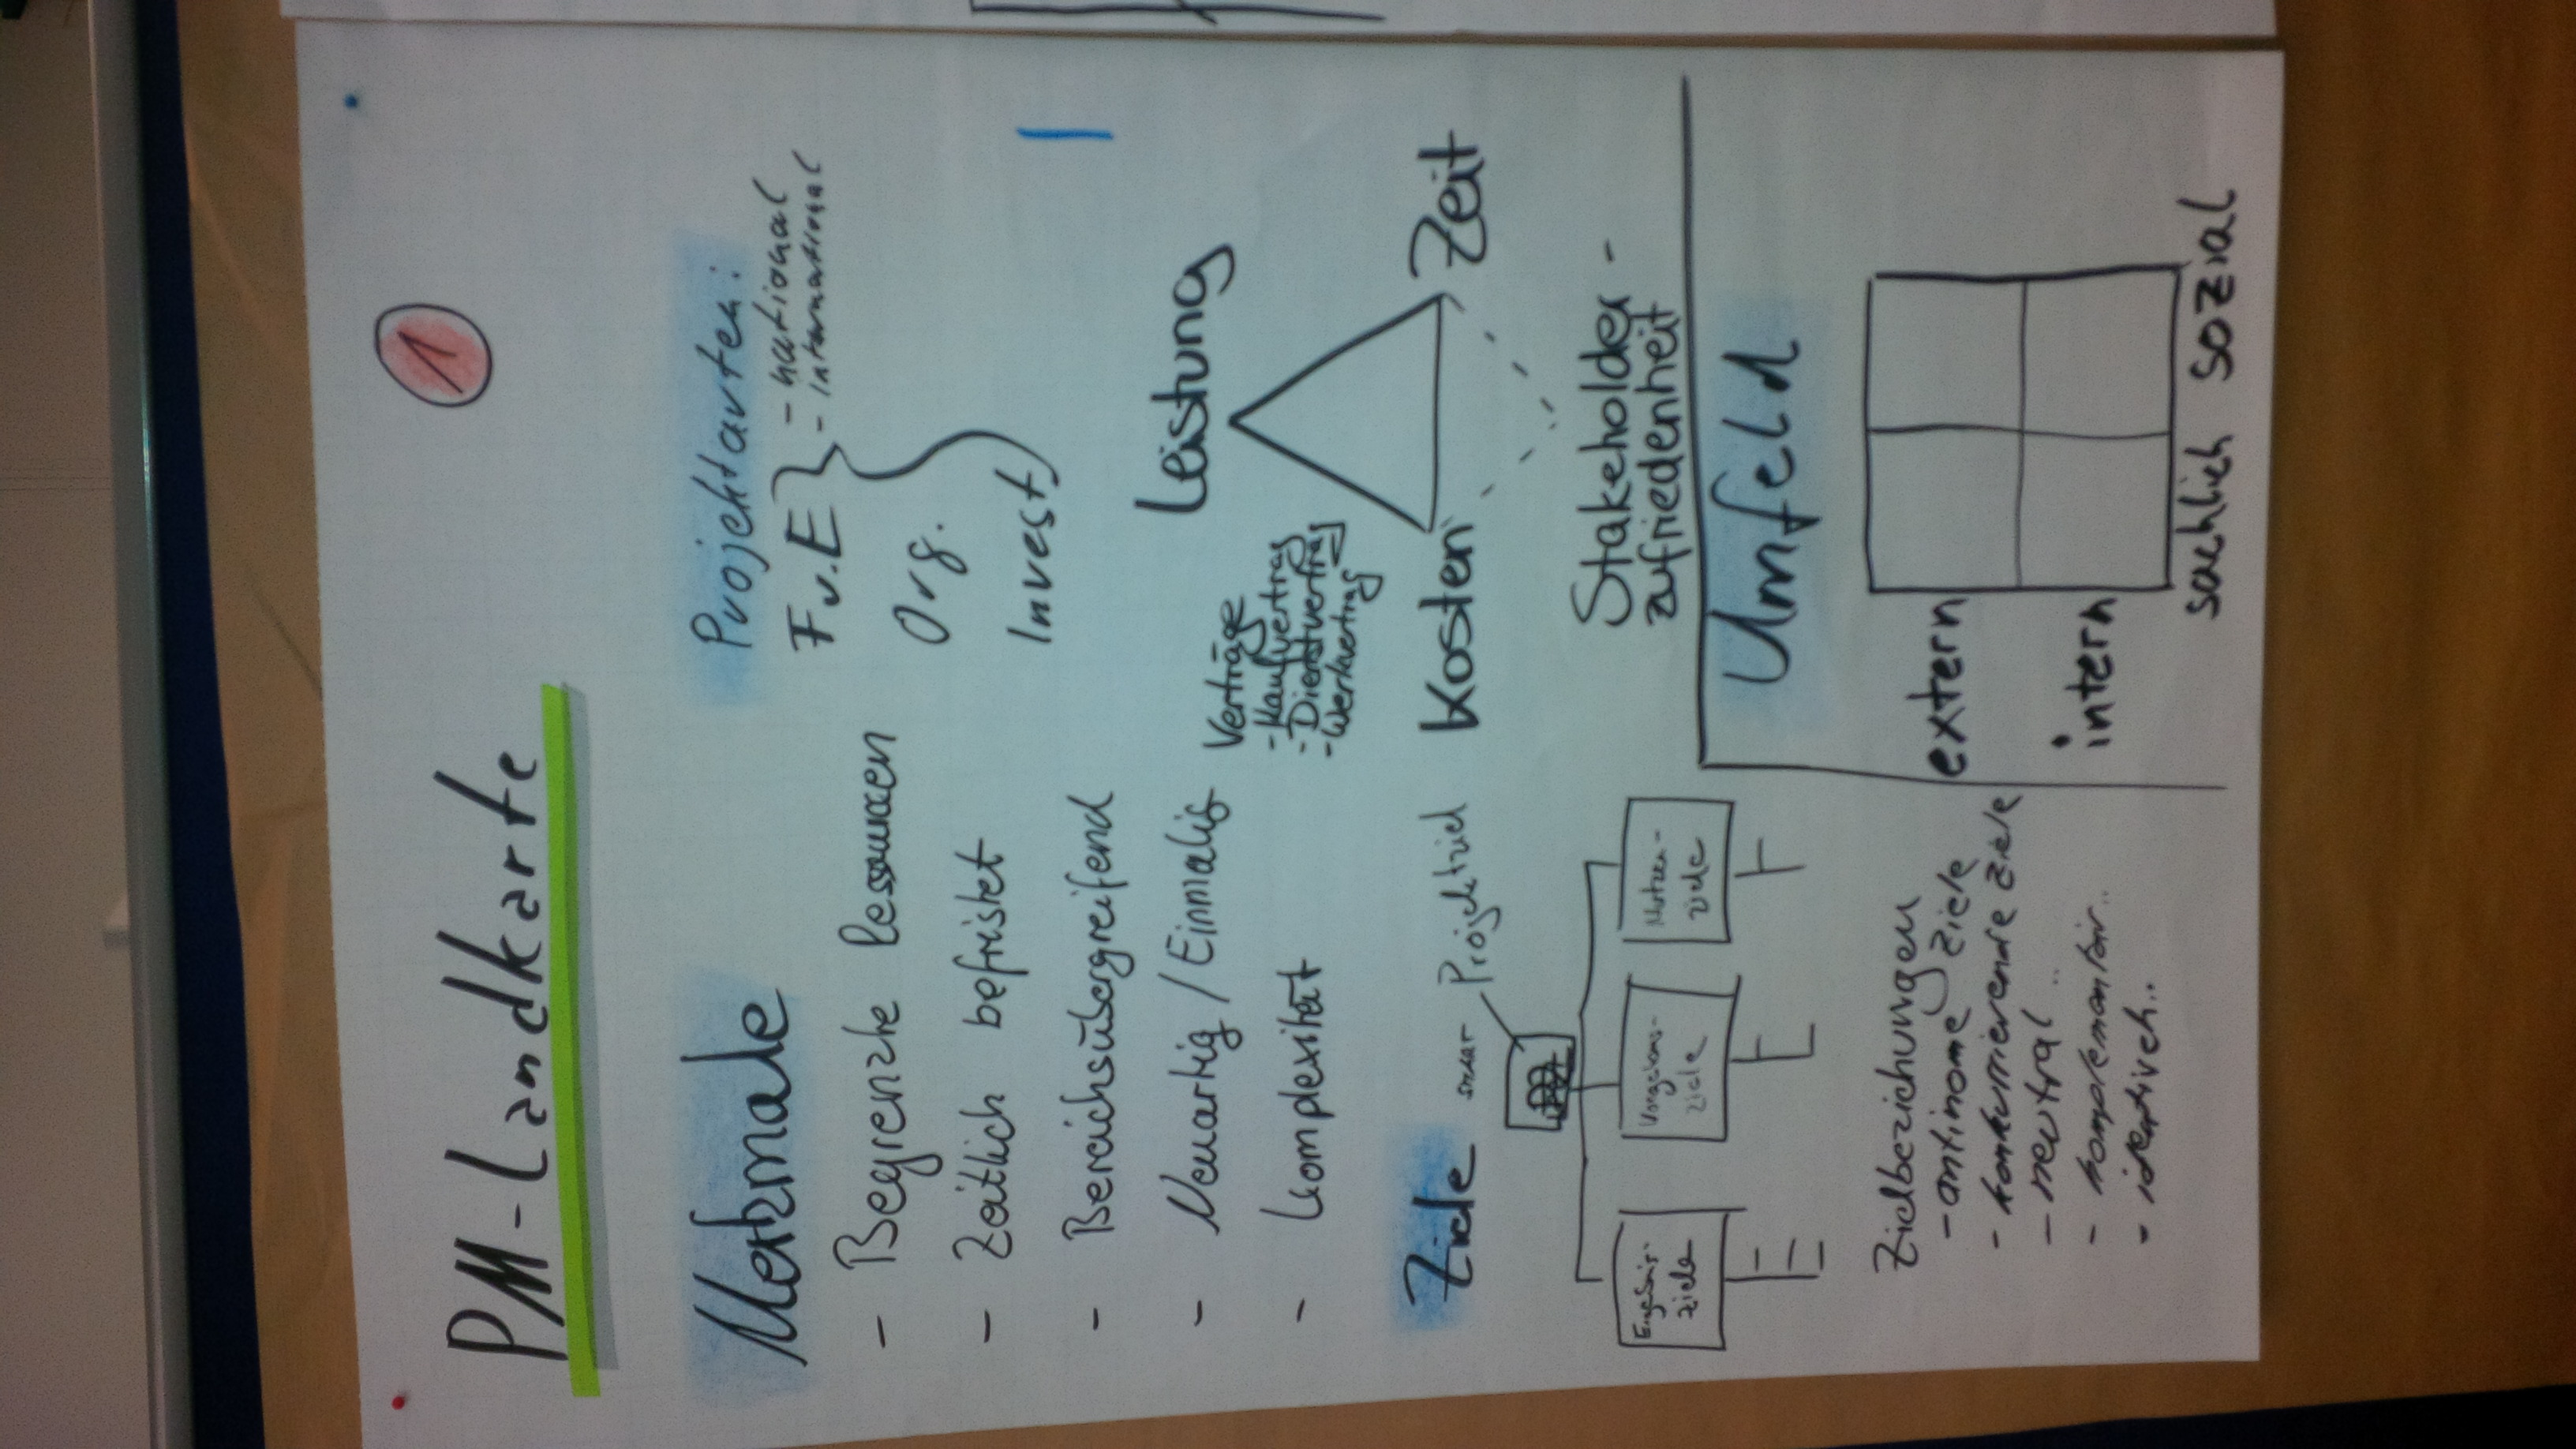 PM-Landkarte
1
Merkmale
- Begrenzte Ressourcen
- Zeitlich befristet
- Bereichsübergreifend
- Neuartig / Einmalig
- Komplexität
Projektarten:
F u. E
- national
- international
Org.
Invest
Leistung
Verträge
- Kaufvertrag
- Dienstvertrag
- Werkvertrag
Kosten
Zeit
Stakeholder-
zufriedenheit
Ziele
smart
Projektziel
Ergebnis-
ziele
Vorgehens-
ziele
Nutzen-
ziele
Zielbeziehungen
- antinome Ziele
- konkurrierende Ziele
- neutral ..
- komplementär..
- identisch..
Umfeld
extern
intern
sachlich sozial